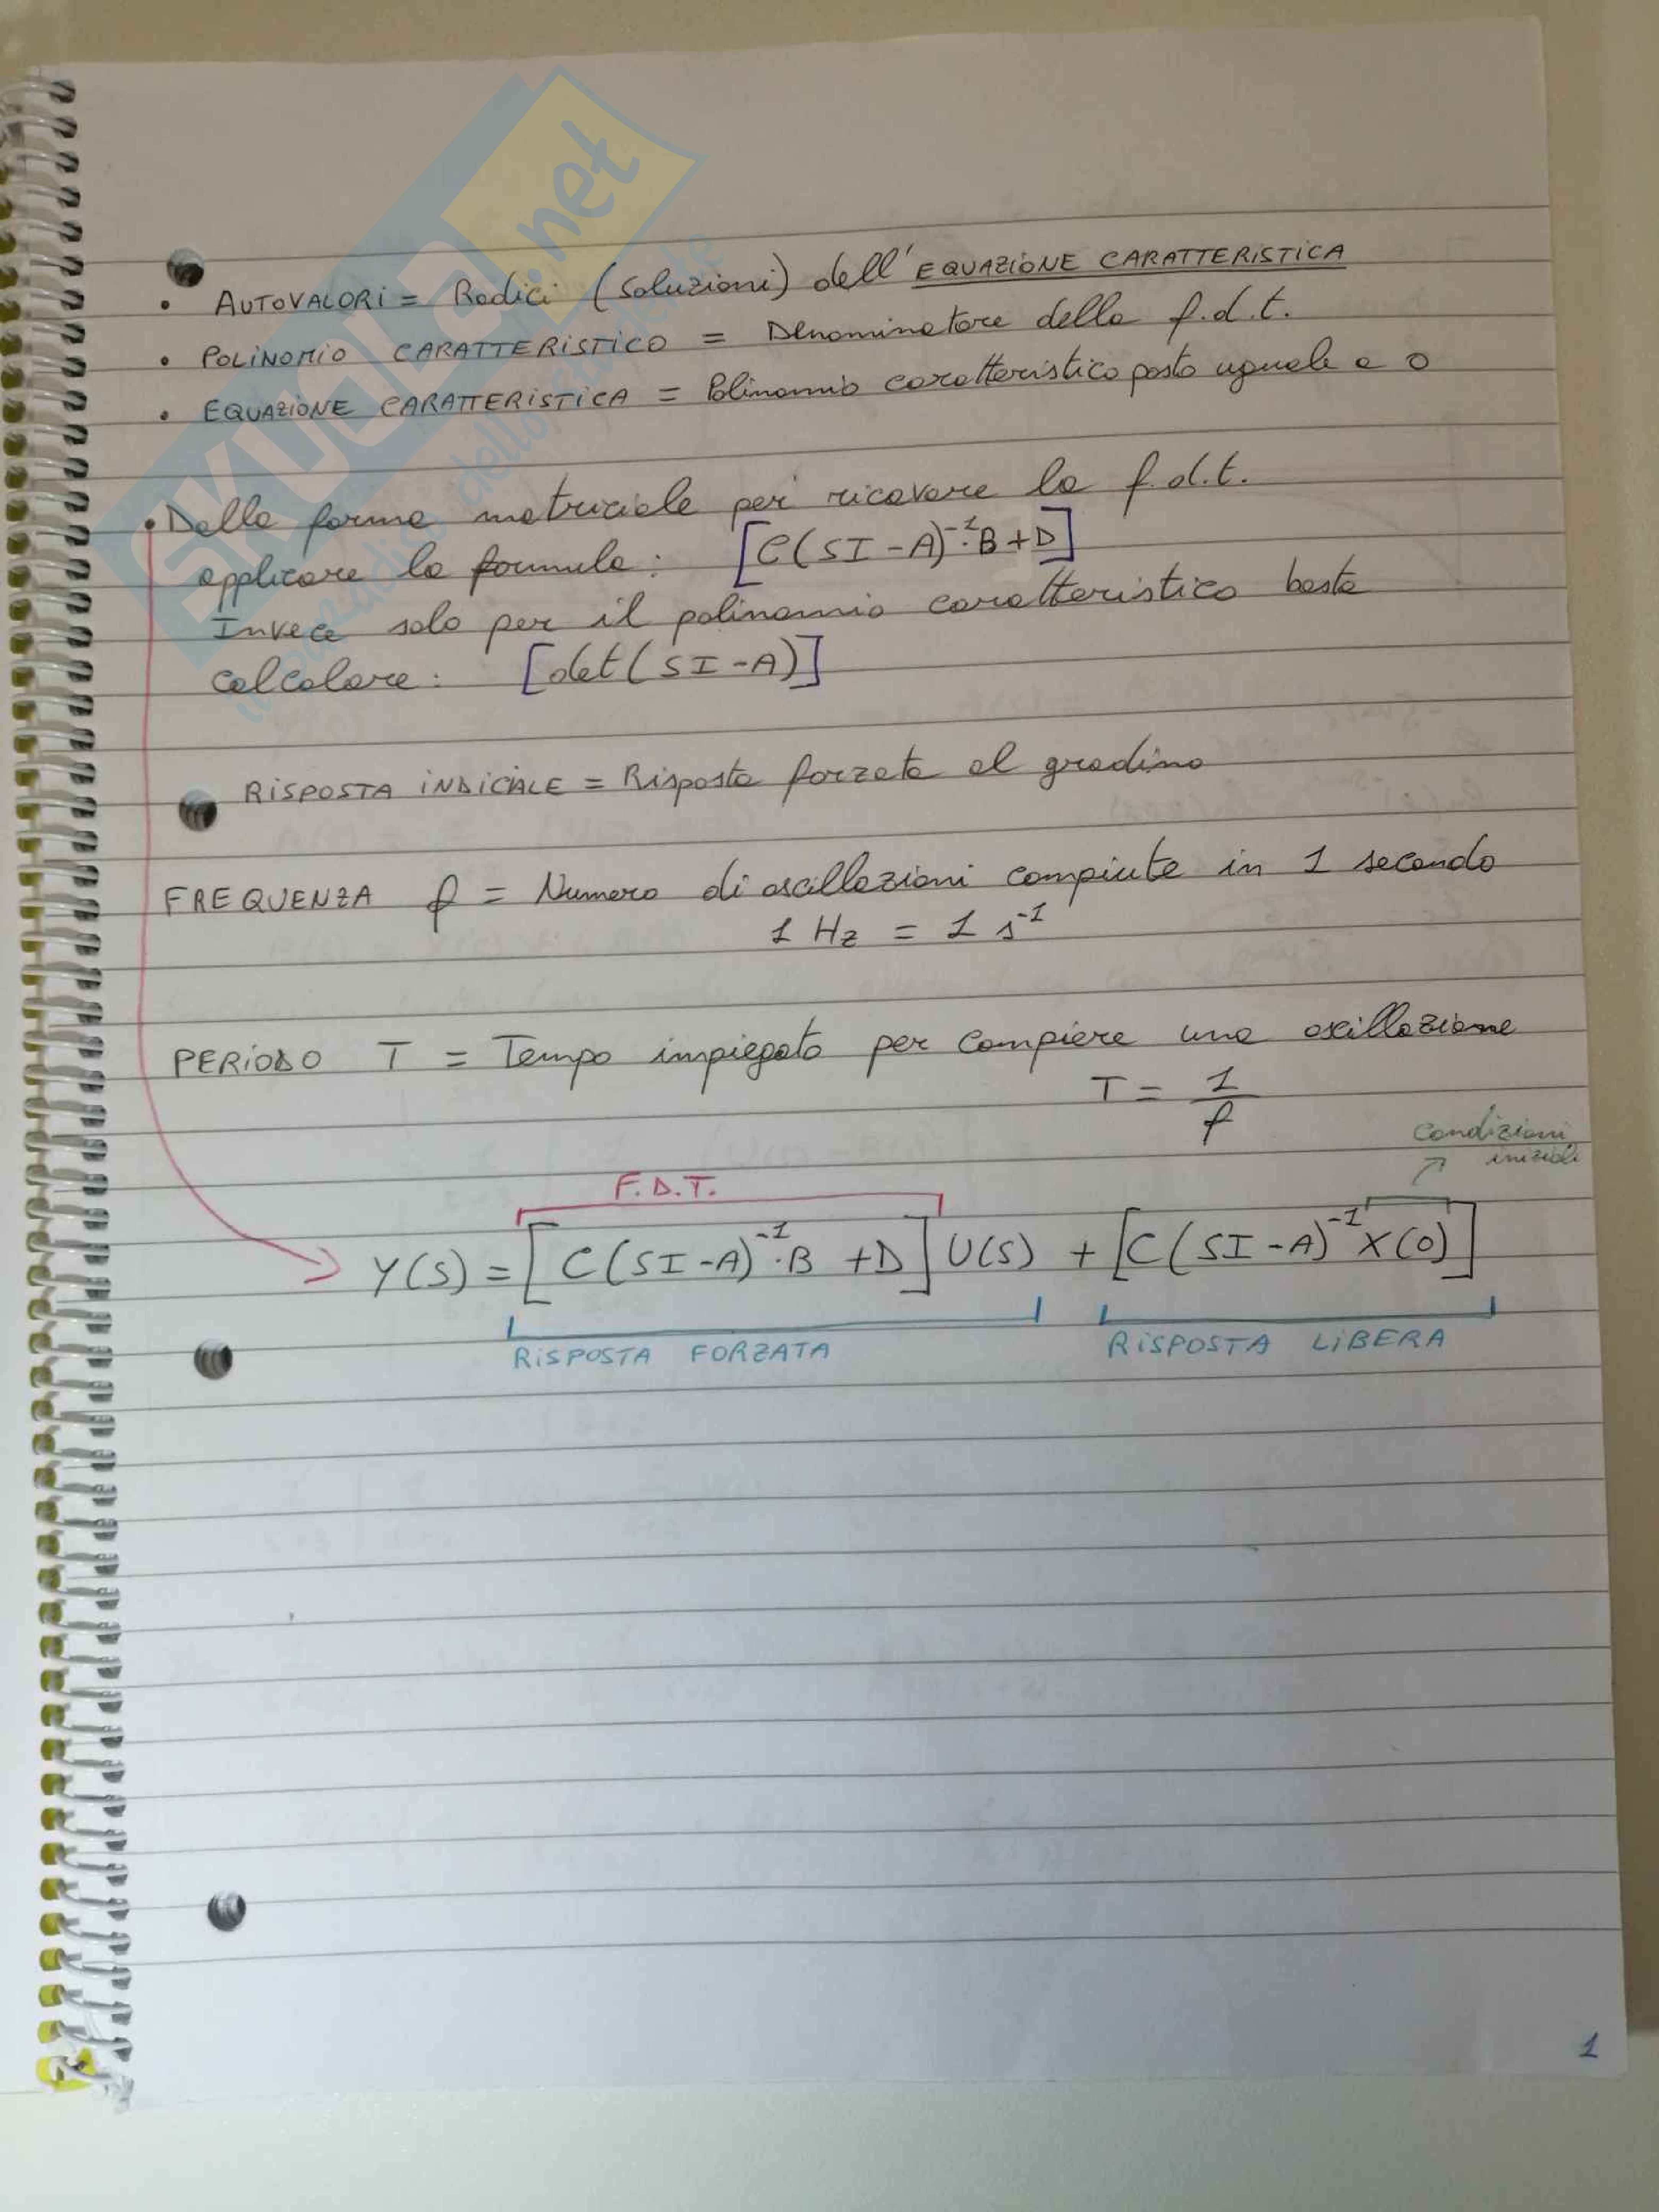 • AUTOVALORI = Radici (soluzioni) dell'EQUAZIONE CARATTERISTICA
• POLINOMIO CARATTERISTICO = Denominatore della f.d.t.
• EQUAZIONE CARATTERISTICA = Polinomio caratteristico posto uguale a 0
• Dalla forma matriciale per ricavare la f.d.t.
applicare la formula: [C(SI-A)⁻¹·B+D]
Invece solo per il polinomio caratteristico basta
calcolare: [det(SI-A)]
RISPOSTA INDICIALE = Risposta forzata al gradino
FREQUENZA f = Numero di oscillazioni compiute in 1 secondo
1 Hz = 1 s⁻¹
PERIODO T = Tempo impiegato per compiere una oscillazione
T = 1/f
condizioni
iniziali
F.D.T.
Y(S) = [C(SI-A)⁻¹·B +D] U(S) + [C(SI-A)⁻¹X(0)]
RISPOSTA FORZATA RISPOSTA LIBERA
1
SKUOLA.net
il paradiso dello studente